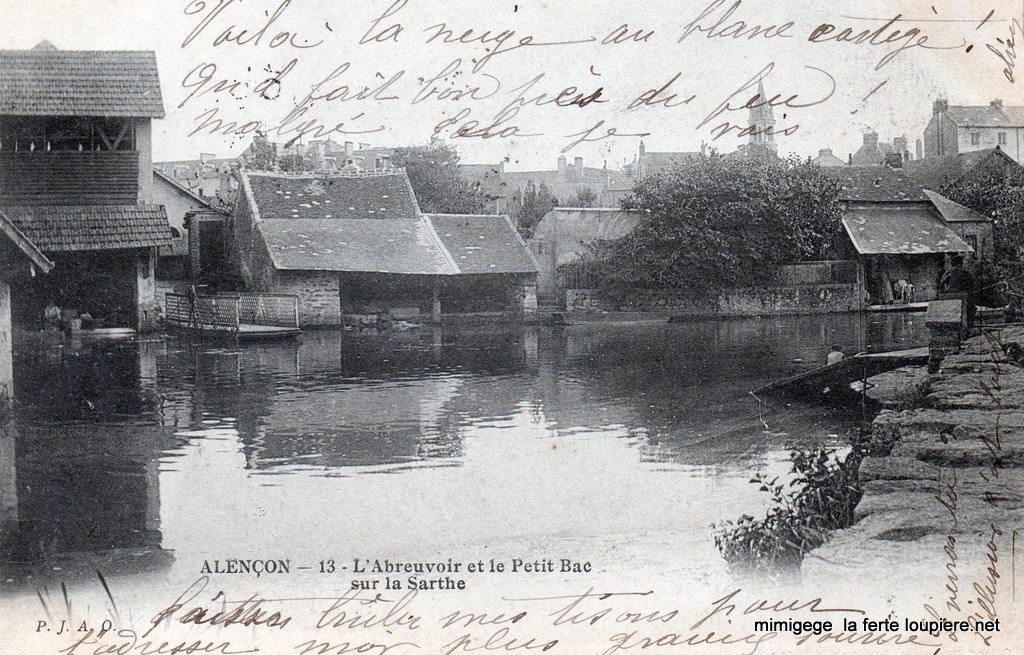 Voilà la neige au blanc cortège !
Qu'il fait bon près du feu !
Malgré cela je vais
ALENÇON - 13 - L'Abreuvoir et le Petit Bac
sur la Sarthe
P. J. A. Q.
laisser brûler mes tisons pour
t'adresser mon plus gracieux sourire
mimigege la ferte loupiere.net